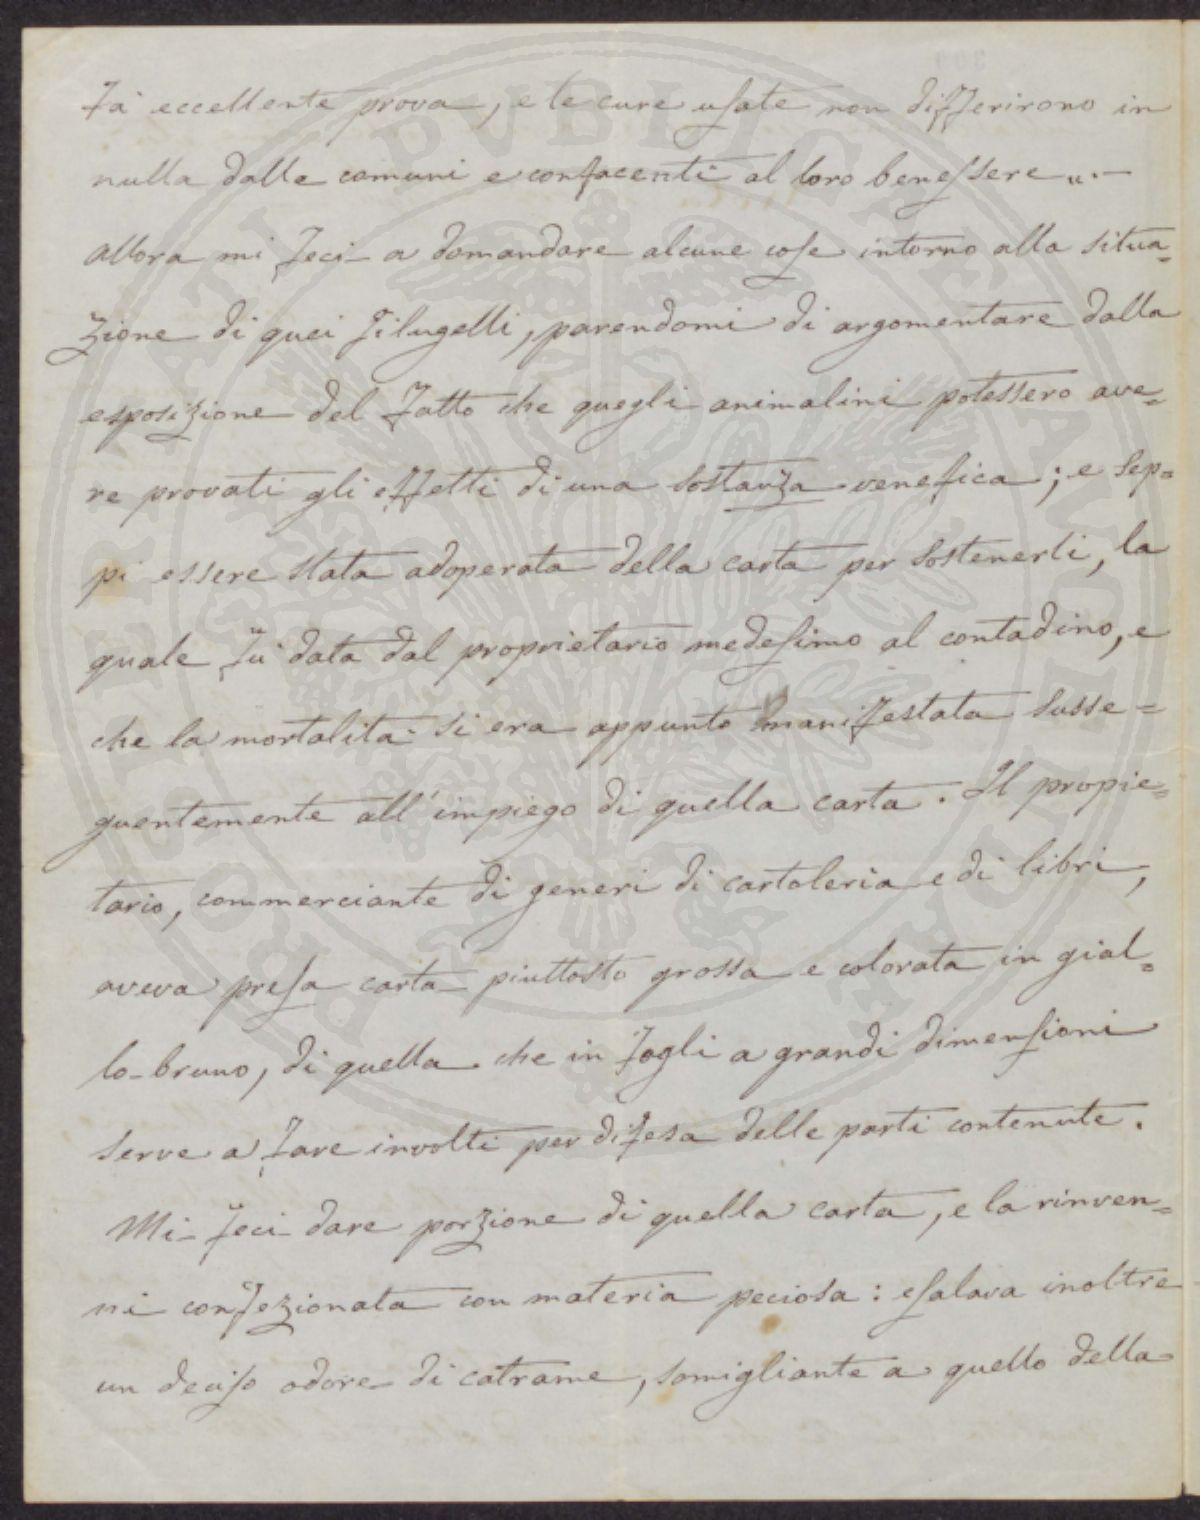 fa' eccellente prova, e le cure usate non differirono in
nulla dalle comuni e confacenti al loro benessere „.—
allora mi feci a domandare alcune cose intorno alla situa=
zione di quei filugelli, parendomi di argomentare dalla
esposizione del fatto che quegli animalini potessero ave=
re provati gli effetti di una sostanza venefica; e sep=
pi essere stata adoperata della carta per sostenerli, la
quale fu' data dal proprietario medesimo al contadino, e
che la mortalita' si era appunto manifestata susse=
guentemente all'impiego di quella carta. Il proprie=
tario, commerciante di generi di cartoleria e di libri,
aveva presa carta piuttosto grossa e colorata in gial=
lo-bruno, di quella che in fogli a grandi dimensioni
serve a fare involti per difesa delle parti contenute.
Mi feci dare porzione di quella carta, e la rinven=
ni confezionata con materia peciosa: esalava inoltre
un deciso odore di catrame, somigliante a quello della
PROSPERITATI PVBLICAE AVGENDAE